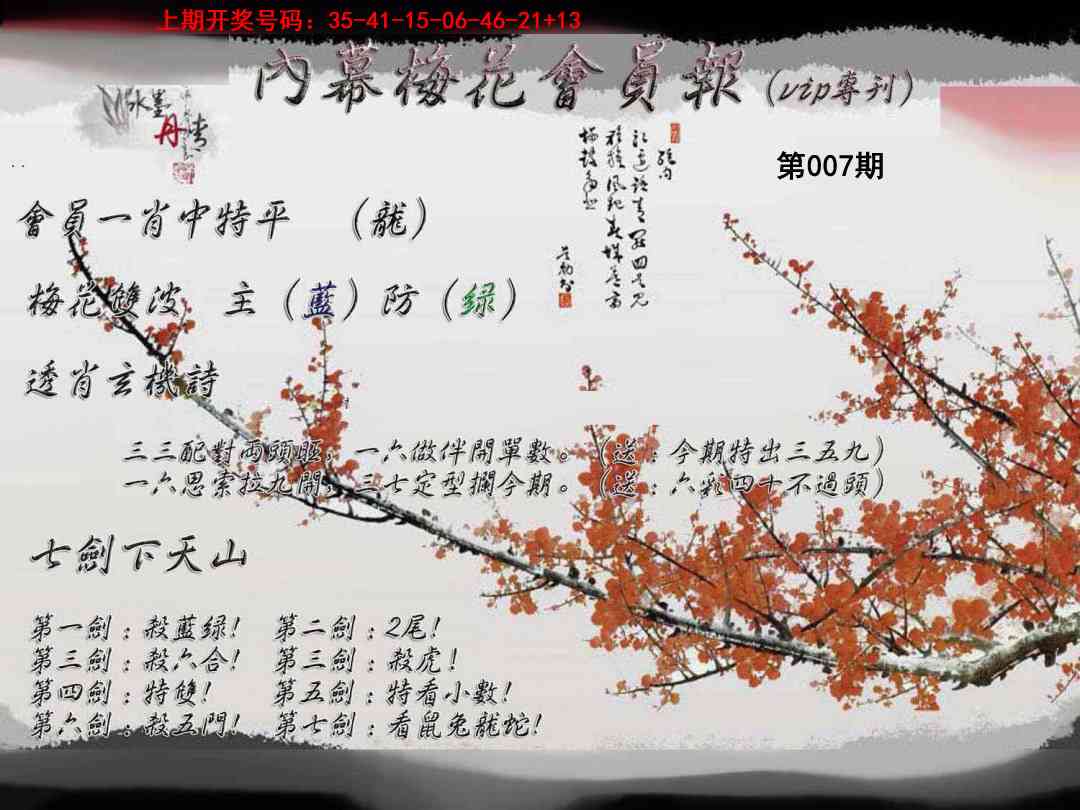 上期开奖号码：35-41-15-06-46-21+13
內幕梅花會員報（vip專刊）
水墨
丹青
第007期
會員一肖中特平 （龍）
梅花雙波 主（藍）防（绿）
透肖玄機詩
三三配對両頭旺，一六做伴開單數。（送：今期特出三五九）
一六思索拉九開，三七定型攔今期。（送：六彩四十不過頭）
七劍下天山
第一劍：殺藍绿！ 第二劍：2尾！
第三劍：殺六合！ 第三劍：殺虎！
第四劍：特雙！ 第五劍：特看小數！
第六劍：殺五門！ 第七劍：看鼠兔龍蛇！